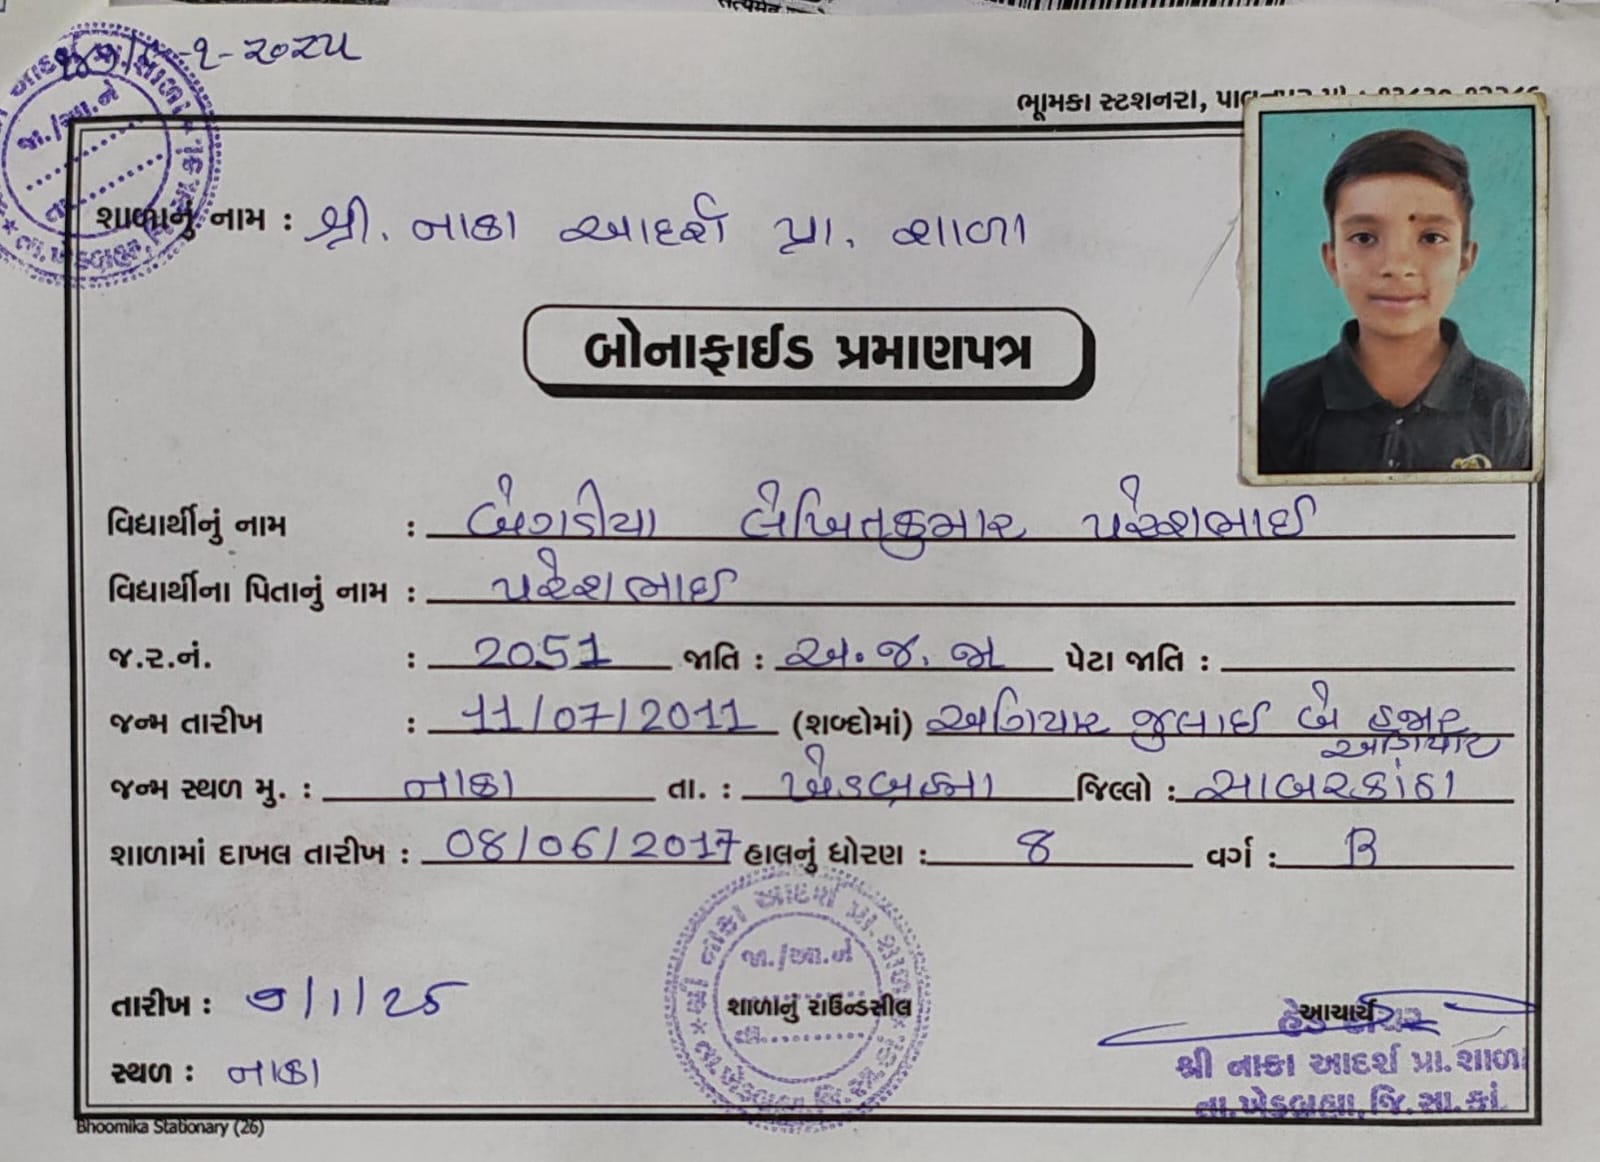 ૧-૨૦૨૫
ભૂમિકા સ્ટેશનરી,
શાળાનું નામ : શ્રી. નાકા આદર્શ પ્રા. શાળા
બોનાફાઈડ પ્રમાણપત્ર
વિદ્યાર્થીનું નામ : બેગડીયા લેખિતકુમાર પરેશભાઈ
વિદ્યાર્થીના પિતાનું નામ : પરેશભાઈ
જ.ર.નં. : 2051 જાતિ : અ.જ.જા પેટા જાતિ :
જન્મ તારીખ : 11/07/2011 (શબ્દોમાં) અગિયાર જુલાઈ બે હજાર
અગિયાર
જન્મ સ્થળ મુ. : નાકા તા. : ખેડબ્રહ્મા જિલ્લો : સાબરકાંઠા
શાળામાં દાખલ તારીખ : 08/06/2017 હાલનું ધોરણ : 8 વર્ગ : B
શ્રી નાકા આદર્શ પ્રા. શાળા
જા./આ.નં
તારીખ : ૭/1/25 શાળાનું રાઉન્ડસીલ આચાર્ય
હેડ ટીચર
શ્રી નાકા આદર્શ પ્રા.શાળા
સ્થળ : નાકા
તા.ખેડબ્રહ્મા, જિ.સા.કાં.
Bhoomika Stationary (26)